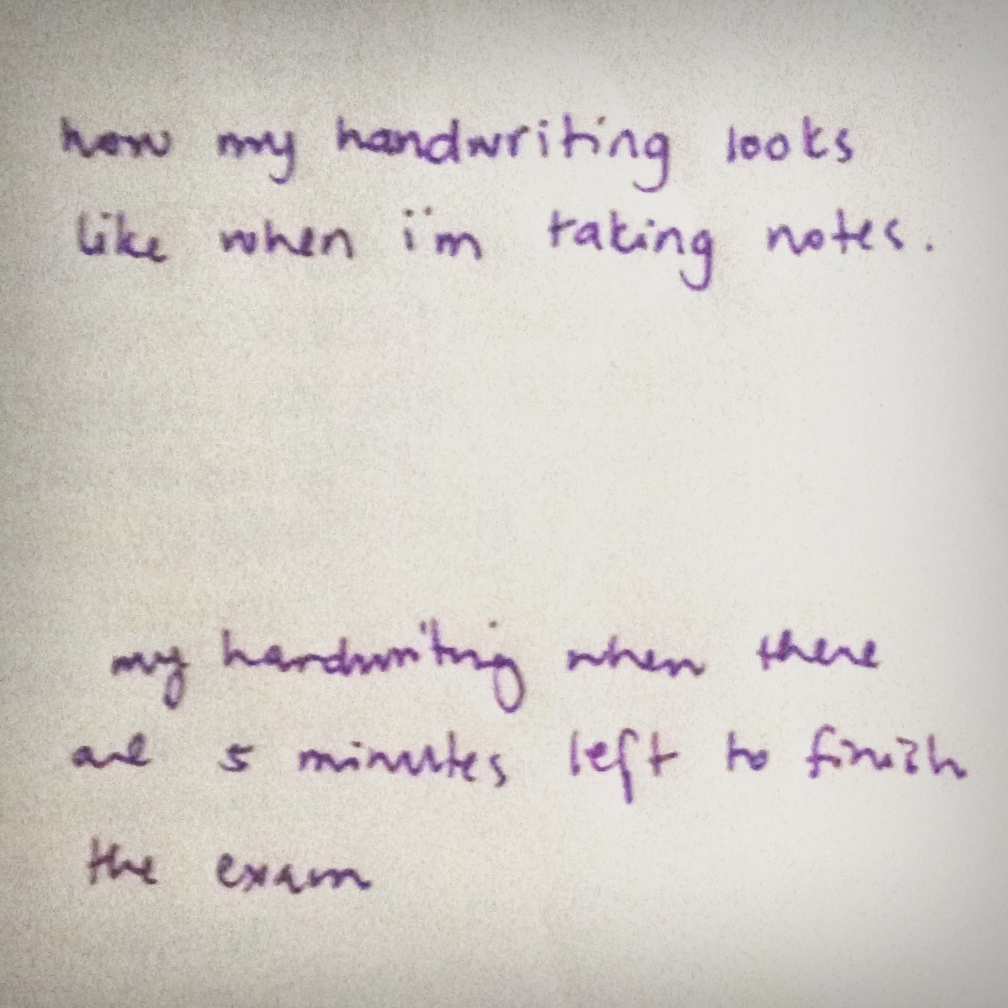 how my handwriting looks
like when i'm taking notes.
my handwriting when there
are 5 minutes left to finish
the exam